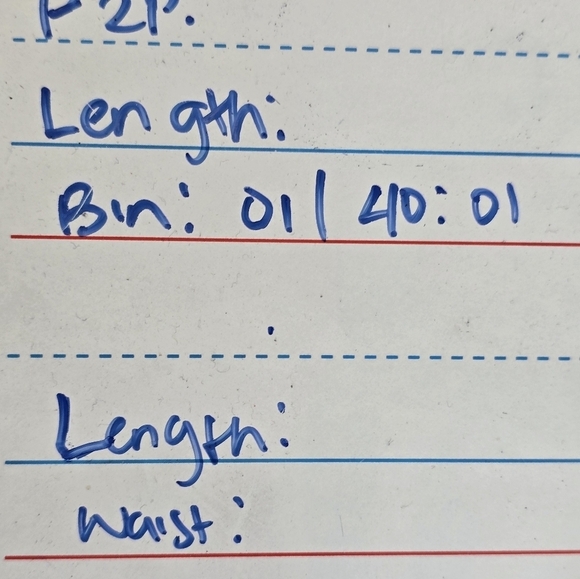 Length:
Bin: 01 | 40:01
Length:
Waist: